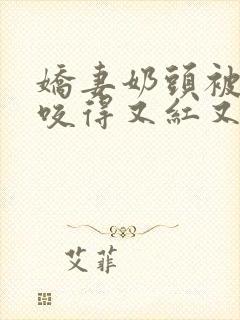 嬌妻奶頭被
咬得又紅又
艾菲